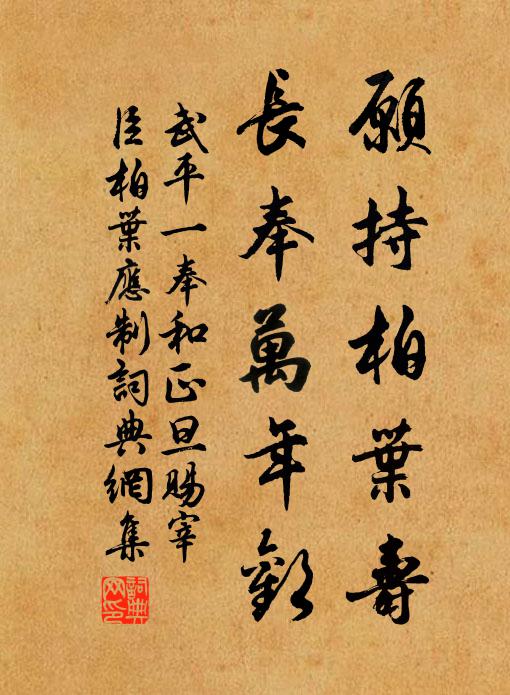 願持柏葉壽
長奉萬年歡
武平一奉和正旦賜宰
臣柏葉應制詞典網集
詞典网印